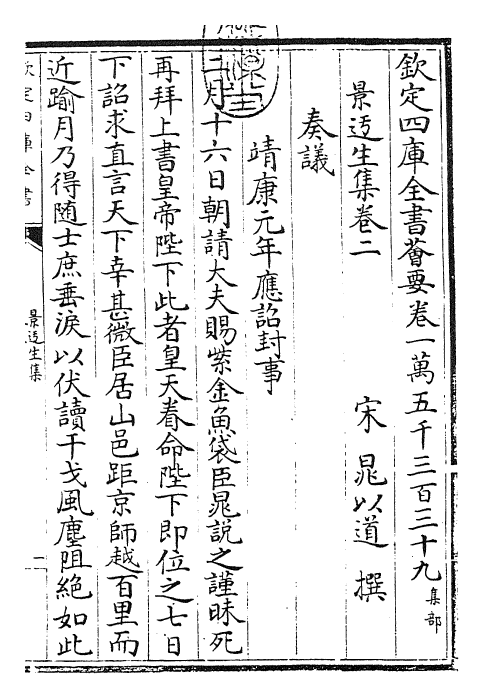 欽定四庫全書薈要卷一萬五千三百三十九 集部
景迃生集卷二 宋 晁以道 撰
奏議
靖康元年應詔封事
二月十六日朝請大夫賜紫金魚袋臣晁說之謹昧死
再拜上書皇帝陛下此者皇天眷命陛下即位之七日
下詔求直言天下幸甚微臣居山邑距京師越百里而
近踰月乃得随士庶垂淚以伏讀干戈風塵阻絕如此
欽定四庫全書
景迃生集
一